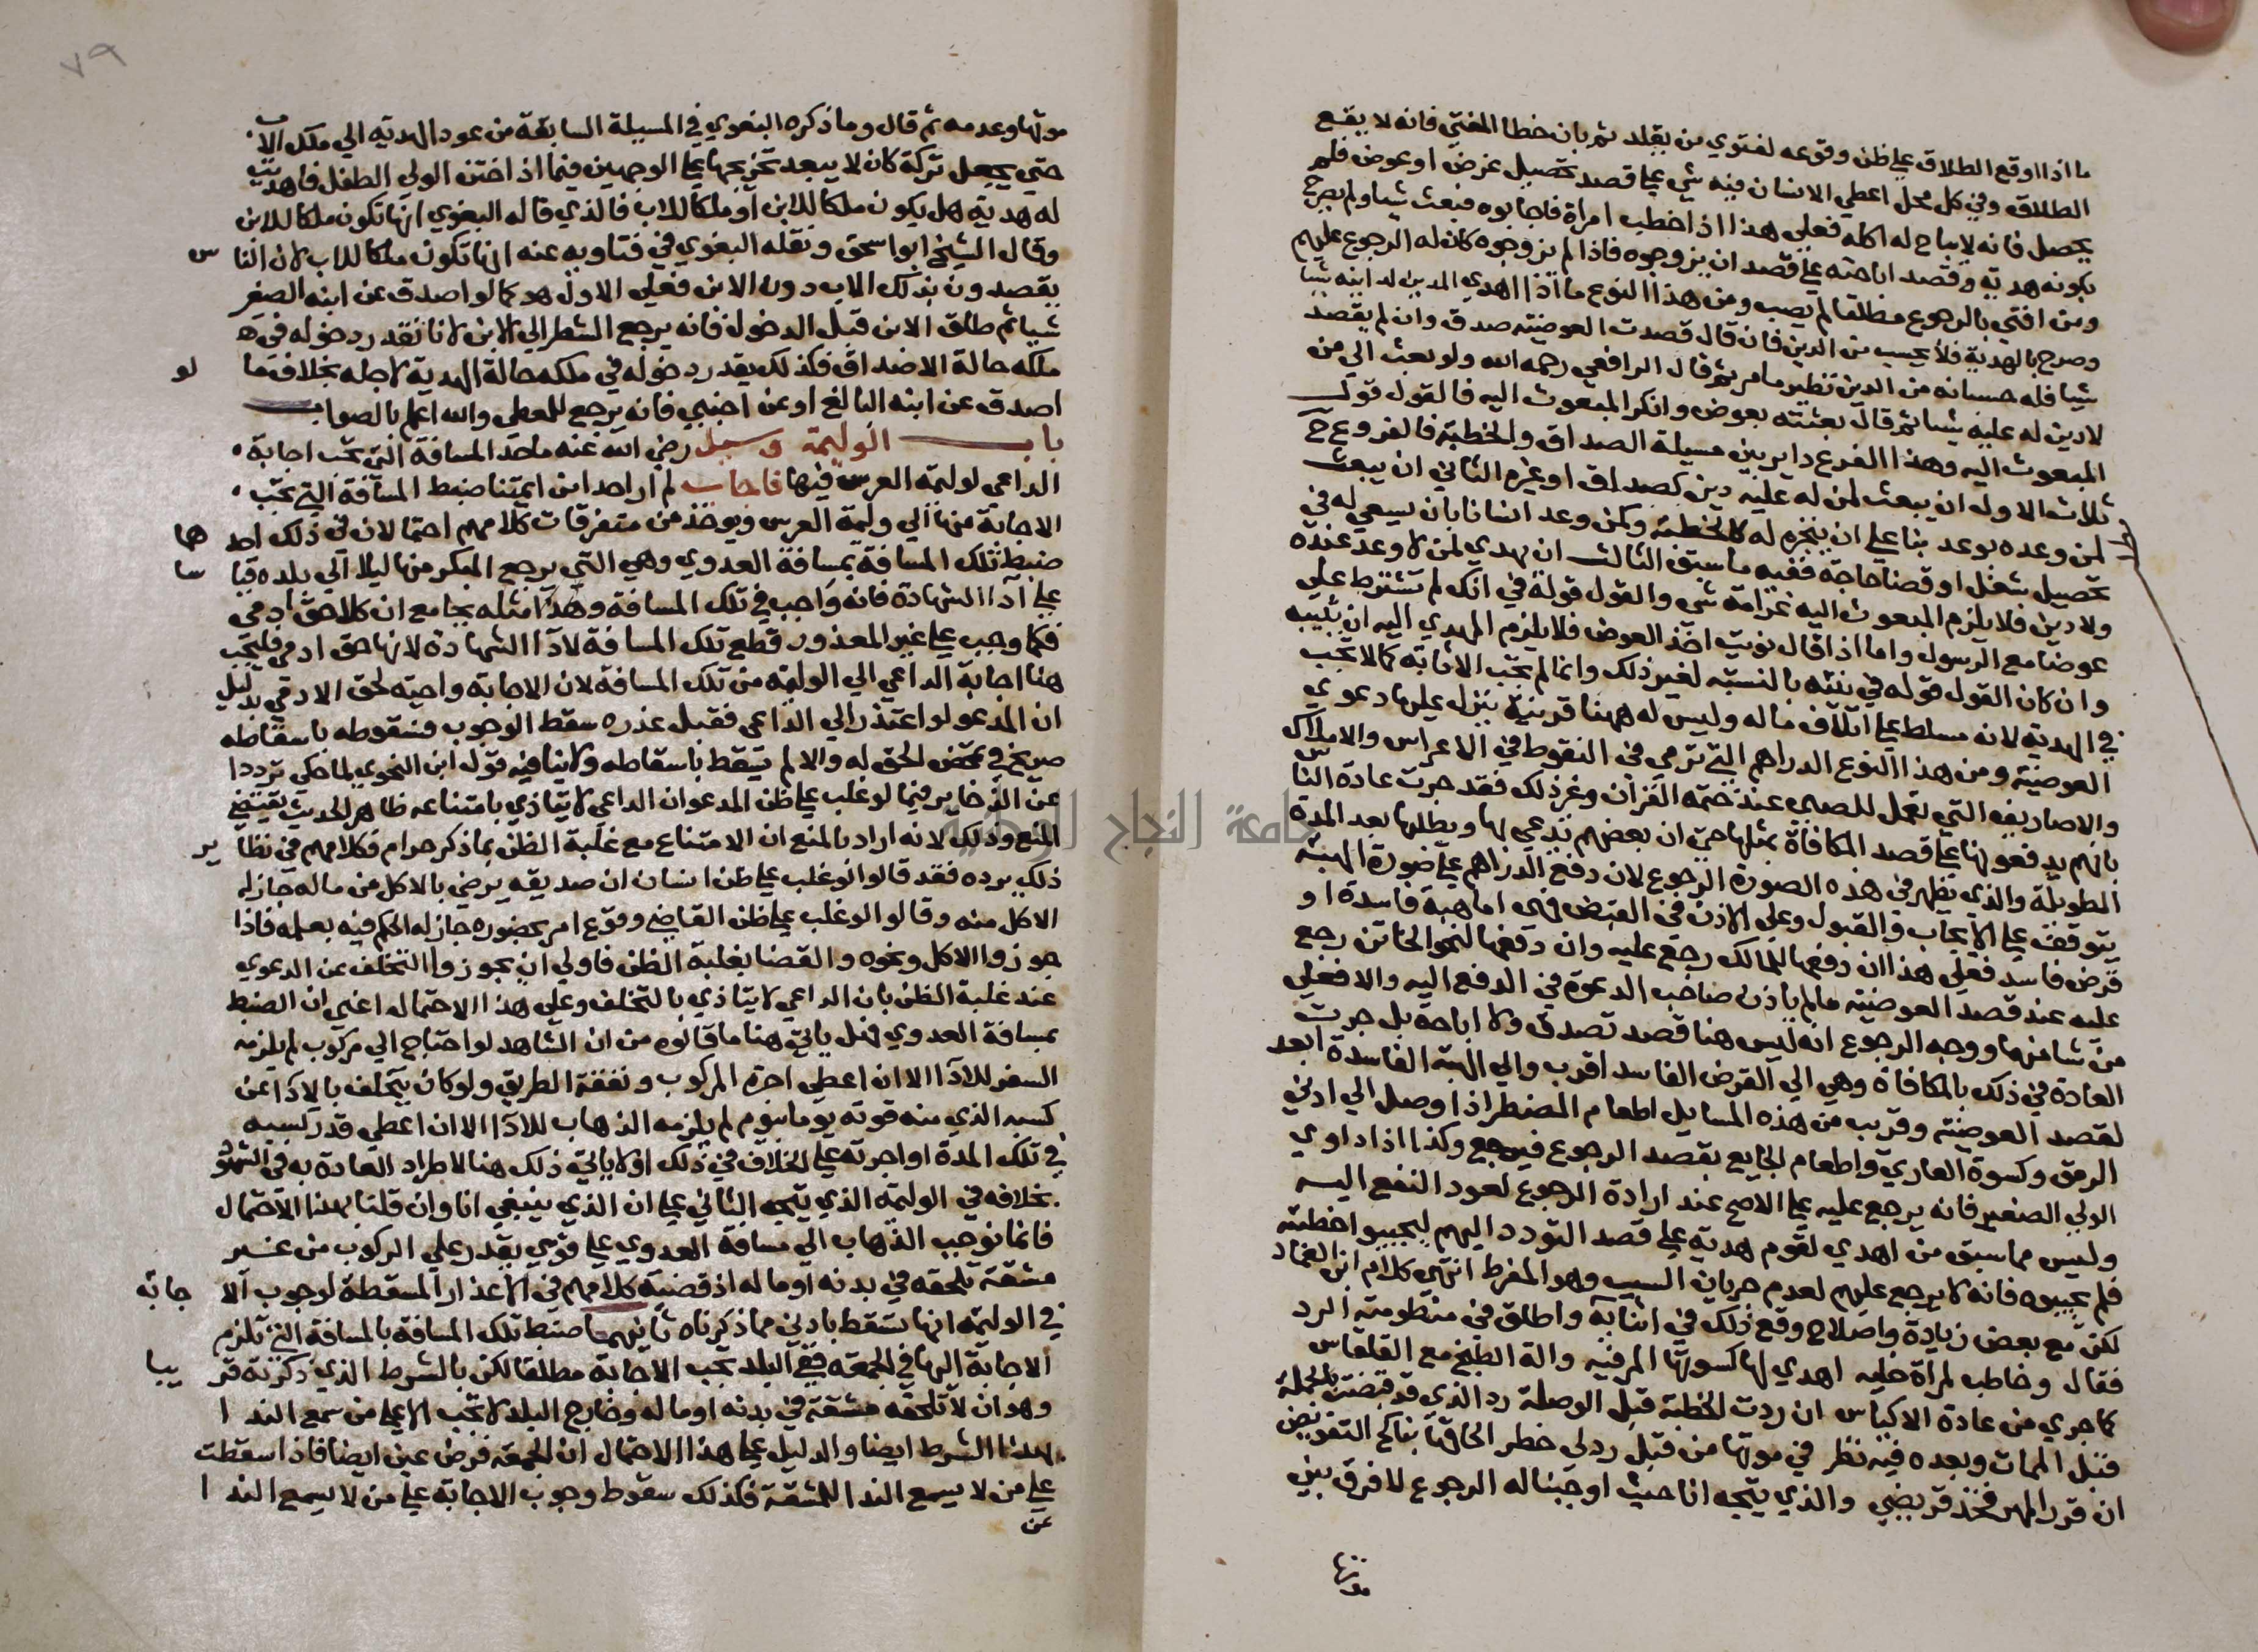 ما اذا اوقع الطلاق علي ظن وقوعه لفتوي من يقلد ثم بان خطا المفتي فانه لا يقع
الطلاق وفي كل محل اعطي الانسان فيه شي علي قصد تحصيل غرض او عوض فلم
يحصل فانه لا يباح له اكله فعلي هذا اذا خطب امراة فاجابوه فبعث شيا ولم يصرح
بكونه هدية وقصد اباحته علي قصد ان يزوجوه فاذا لم يزوجوه كان له الرجوع عليهم
ومن افتي بالرجوع مطلقا لم يصب ومن هذا النوع ما اذا اهدي المدين لدائنه شيا
وصرح بالهدية فلا يحسب من الدين فان قال قصدت العوضية صدق وان لم يقصد
شيا فله حسبانه من الدين نظير ما مر ثم قال الرافعي رحمه الله ولو بعث الي من
لا دين له عليه شيا ثم قال بعثته بعوض وانكر المبعوث اليه فالقول قول
المبعوث اليه وهذا الفرع داير بين مسيلة الصداق والخطبة فالفروع ح
ثلاث الاول ان يبعث لمن له عليه دين كصداق او غيره الثاني ان يبعث
لمن وعده بوعد بنا علي ان ينجزه له كالخطبة وكمن وعد انسانا بان يسعي له في
تحصيل شغل او قضا حاجة ففيه ما سبق الثالث ان يهدي لمن لا وعد عنده
ولا دين فلا يلزم المبعوث اليه غرامة شي والقول قوله في انك لم تشترط علي
عوضا مع الرسول واما اذا قال نويت اخذ العوض فلا يلزم المهدي اليه ان يثيبه
وان كان القول قوله في نيته بالنسبة لغير ذلك وانما لم تجب الاثابة كما لا تجب
في الهدية لانه مسلط علي اتلاف ماله وليس له ههنا قرينة ينزل عليها دعوي
العوضية ومن هذا النوع الدراهم التي ترمي في النقوط في الاعراس والاملاك
والاصاريف التي تعمل للصبي عند ختمه القران وغير ذلك فقد جرت عادة النا س
بانهم يدفعونها علي قصد المكافاة بمثلها حتي ان بعضهم يدعي بها ويطلبها بعد المدة
الطويلة والذي يظهر في هذه الصورة الرجوع لان دفع الدراهم علي صورة الهبة
يتوقف علي الايجاب والقبول وعلي الاذن في القبض فهي اما هبة فاسدة او
قرض فاسد فعلي هذا ان دفعها للمالك رجع عليه وان دفعها لنحو الخاتن رجع
عليه عند قصد العوضية ما لم ياذن صاحب الدعوة في الدفع اليه والا فعلي
من شا منهما ووجه الرجوع انه ليس هنا قصد تصدق ولا اباحة بل جرت
العادة في ذلك بالمكافاة وهي الي القرض الفاسد اقرب والي الهبة الفاسدة ابعد
لقصد العوضية وقريب من هذه المسايل اطعام المضطر اذا وصل الي ادني
الرمق وكسوة العاري واطعام الجايع بقصد الرجوع فيرجع وكذا اذا داوي
الولي الصغير فانه يرجع عليه علي الاصح عند ارادة الرجوع لعود النفع اليه
وليس مما سبق من اهدي لقوم هدية علي قصد التودد اليهم ليجيبوا خطبته
فلم يجيبوه فانه لا يرجع عليهم لعدم جريان السبب وهو المفرط انتهي كلام ابن العماد
لكن مع بعض زيادة واصلاح وقع ذلك في اثنايه واطلق في منظومته الرد
فقال وخاطب لمراة حليه اهدي لها كسوتها المرفيه والة الطبخ مع القلقاس
كما جري من عادة الاكياس ان ردت الخطبة قبل الوصلة رد الذي قد قبضت بالجملة
قبل الممات وبعده فيه نظر في موتها من قبل رد لي خطر الحاقها بناكح التفويض
ان قرر المهر فخذ قريضي والذي يتجه انا حيث اوجبنا له الرجوع لا فرق بين
موتها
٧٩
موتها وعدمه ثم قال وما ذكره البغوي في المسيلة السابقة من عود الهدية الي ملك الاب
حتي يجعل تركة كان لا يبعد تخريجها علي الوجهين فيما اذا ختن الولي الطفل فاهديت
له هدية هل يكون ملكا للابن او ملكا للاب فالذي قاله البغوي انها تكون ملكا للابن
وقال الشيخ ابو اسحق ونقله البغوي في فتاويه عنه انها تكون ملكا للاب لان النا س
يقصدون بذلك الاب دون الابن فعلي الاول هو كما لو اصدق عن ابنه الصغير
شيا ثم طلق الابن قبل الدخول فانه يرجع الشطر الي الابن لانا نقدر دخوله في
ملكه حالة الاصداق فكذلك يقدر دخوله في ملكه حالة الهدية لاجله بخلاف ما لو
اصدق عن ابنه البالغ او عن اجنبي فانه يرجع للمعطي والله اعلم بالصواب
باب الوليمة وسيل رضي الله عنه ما حد المسافة التي تجب اجابة
الداعي لوليمة العرس فيها فاجاب لم ار احدا من ايمتنا ضبط المسافة التي تجب
الاجابة منها الي وليمة العرس ويوخذ من متفرقات كلامهم احتمالان في ذلك احد هما
ضبط تلك المسافة بمسافة العدوي وهي التي يرجع المبكر منها ليلا الي بلده قيا سا
علي اداا الشهادة فانه واجب في تلك المسافة وهذا مثله بجامع ان كلا حق ادمي
فكما وجب علي غير المعذور قطع تلك المسافة لاداا الشهادة لانها حق ادمي فليجب
هنا اجابة الداعي الي الوليمة من تلك المسافة لان الاجابة واجبة لحق الادمي بدليل
ان المدعو لو اعتذر الي الداعي فقبل عذره سقط الوجوب فسقوطه باسقاطه
صريح في تمحض الحق له والا لم يسقط باسقاطه ولا ينافيه قول ابن النحوي لما حكي ترددا
عن الذخاير فيما لو غلب علي ظن المدعو ان الداعي لا يتاذي بامتناعه ظاهر الحديث يقتضي
المنع وذلك لانه اراد بالمنع ان الامتناع مع غلبة الظن بما ذكر حرام فكلامهم في نظا ير
ذلك يرده فقد قالوا لو غلب علي ظن انسان ان صديقه يرضي بالاكل من ماله جاز له
الاكل منه وقالوا لو غلب علي ظن القاضي وقوع امر بحضوره جاز له الحكم فيه بعلمه فاذا
جوزوا الاكل ونحوه والقضا بغلبة الظن فاولي ان يجوزوا التخلف عن الدعوي
عند غلبة الظن بان الداعي لا يتاذي بالتخلف وعلي هذا الاحتمال اعني ان الضبط
بمسافة العدوي فهل ياتي هنا ما قالوه من ان الشاهد لو احتاج الي مركوب لم يلزمه
السفر للاداا الا ان اعطي اجرة المركوب ونفقة الطريق ولو كان يتخلف بالادا عن
كسبه الذي منه قوته يوما بيوم لم يلزمه الذهاب للاداا الا ان اعطي قدر كسبه
في تلك المدة او اجرته علي الخلاف في ذلك او لا ياتي ذلك هنا لاطراد العادة به في الشهود
بخلافه في الوليمة الذي يتجه الثاني علي ان الذي ينبغي انا وان قلنا بهذا الاحتمال
فانما نوجب الذهاب الي مسافة العدوي علي قوي يقدر علي الركوب من غير
مشقة تلحقه في بدنه او ماله اذ قضية كلامهم في الاعذار المسقطة لوجوب الا جابة
في الوليمة انها تسقط بادني مما ذكرناه ثانيهما ضبط تلك المسافة بالمسافة التي تلزم
الاجابة اليها في الجمعة ففي البلد تجب الاجابة مطلقا لكن بالشرط الذي ذكرته قر يبا
وهو ان لا تلحقه مشقة في بدنه او ماله وخارج البلد لا تجب الا علي من سمع الندا
بهذا الشرط ايضا والدليل علي هذا الاحتمال ان الجمعة فرض عين ايضا فاذا سقطت
علي من لا يسمع الندا للمشقة فكذلك سقوط وجوب الاجابة علي من لا يسمع الندا
عن
جامعة النجاح الوطنية